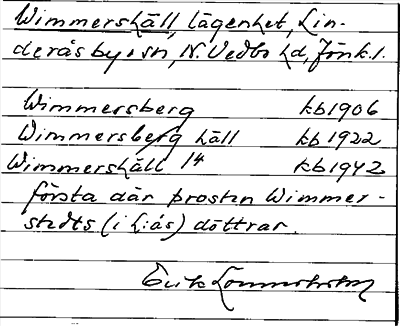 Wimmershäll, lägenhet, Lin-
deråsby o sn, N. Vedbo hd, Jönk. l.
Wimmersberg kb 1906
Wimmersberg häll kb 1922
Wimmershäll 14 kb 1942
första där prosten Wimmer-
stedts (i L:ås) döttrar.
Erik